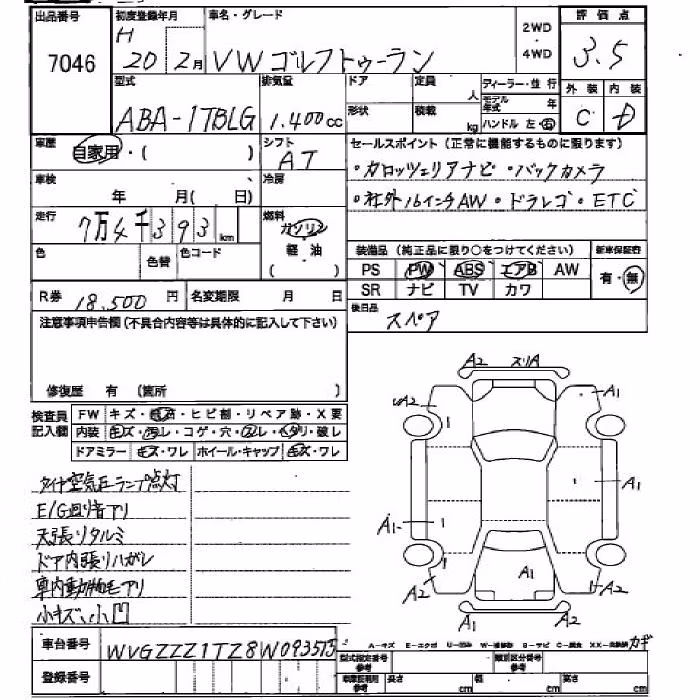 出品番号 初度登録年月 車名・グレード 2WD・4WD 評価点
7046 H 20 2月 VW ゴルフトゥーラン 3.5
型式 排気量 ドア 定員 人 ディーラー・並行 外装 内装
ABA-1TBLG 1.400cc 形状 積載 kg モデル年式 年 ハンドル 左・右 C D
車歴 自家用・( ) シフト AT セールスポイント(正常に機能するものに限ります)
・カロッツェリアナビ・バックカメラ
車検 年 月( 日) 冷房
・社外16インチAW・ドラレコ・ETC
走行 7万4千393km 燃料 ガソリン 軽油 ( )
色 色替 色コード
装備品(純正品に限り○をつけてください) 新車保証書
PS PW ABS エアB AW 有・無
SR ナビ TV カワ
R券 18,500円 名変期限 月 日
後日品 スペア
注意事項申告欄(不具合内容等は具体的に記入して下さい)
修復歴 有 (箇所 )
検査員記入欄 FW キズ・ ・ヒビ割・リペア跡・X要
内装 キズ・ ・コゲ・穴・ ・ヘタリ・破レ
ドアミラー キズ・ワレ ホイール・キャップ キズ・ワレ
タイヤ空気圧ランプ点灯
E/G回り音アリ
天張リタルミ
ドア内張リハガレ
車内動物毛アリ
小キズ、小凹
A2 スリA
A2 A1
1
1 A1
A1 1
A2 A1 A2
A1 A2
車台番号 WVGZZZ1TZ8W093573
登録番号
A-キズ E-エクボ U-凹み W-補修跡 S-サビ C-腐食 XX-交換済 カギ
型式指定番号 参考 類別区分番号 参考
車庫証明用 参考 長さ cm 幅 cm 高さ cm